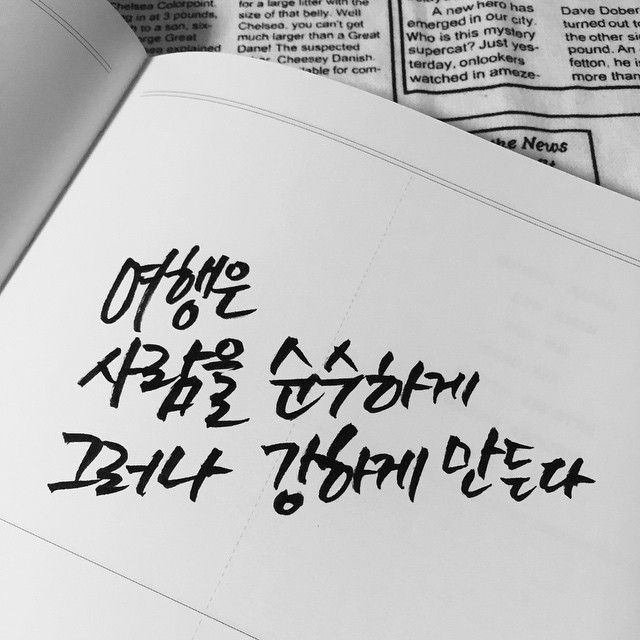 Chelsea Colorpoint
ng in at 3 pounds,
to a son, six-
rge Great
explained
for a large litter with the
size of that belly. Well
Chelsea, you can't get
much larger than a Great
Dane! The suspected
Cheesey Danish.
able for com-
A new hero has
emerged in our city.
Who is this mystery
supercat? Just yes-
terday, onlookers
watched in ameze-
Dave Dober
turned out t
the other si
pound. An
fetton, he is
more than
he News
여행은
사람을 순수하게
그러나 강하게 만든다